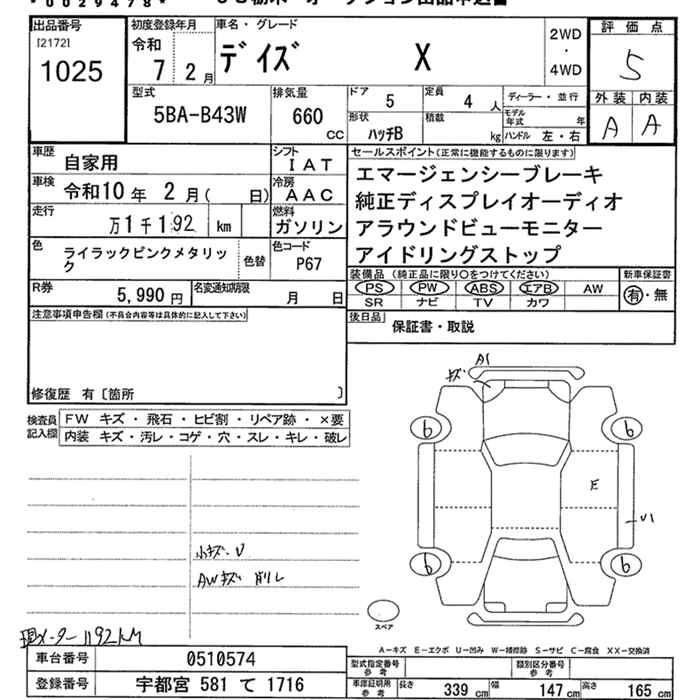 *0029478*
出品番号
[2172]
1025
初度登録年月
令和
7 2月
車名・グレード
デイズ X
2WD
・
4WD
評価点
5
外装 内装
A A
型式
5BA-B43W
排気量
660
CC
ドア
5
定員
4 人
形状
ハッチB
積載
kg
ディーラー・並行
モデル年式 年
ハンドル 左・右
車歴
自家用
シフト
IAT
車検
令和10年 2月( 日)
冷房
AAC
走行
万1千192 km
燃料
ガソリン
色
ライラックピンクメタリック
色替
色コード
P67
R券
5,990円
名変通知期限
月 日
セールスポイント(正常に機能するものに限ります)
エマージェンシーブレーキ
純正ディスプレイオーディオ
アラウンドビューモニター
アイドリングストップ
装備品 (純正品に限り○をつけてください)
PS PW ABS エアB AW
SR ナビ TV カワ
新車保証書
有・無
後日品
保証書・取説
注意事項申告欄(不具合内容等は具体的に記入して下さい)
修復歴 有〔箇所 〕
検査員記入欄
FW キズ・飛石・ヒビ割・リペア跡・×要
内装 キズ・汚レ・コゲ・穴・スレ・キレ・破レ
A1
キズ
6
6
E
U1
6
6
小キズ・U
AWキズ 削レ
スペア
現メーター1192KM
A-キズ E-エクボ U-凹み W-補修跡 S-サビ C-腐食 XX-交換済
車台番号
0510574
登録番号
宇都宮 581 て 1716
型式指定番号
参考
類別区分番号
参考
車庫証明用
参考
長さ 339 cm
幅 147 cm
高さ 165 cm